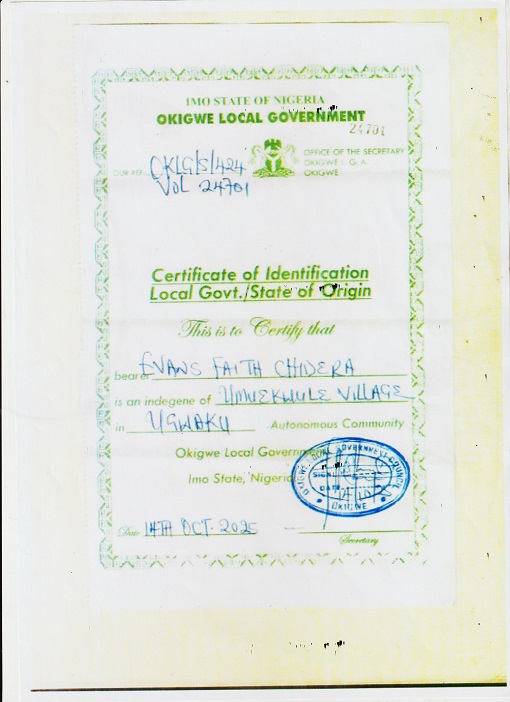 IMO STATE OF NIGERIA
OKIGWE LOCAL GOVERNMENT
24701
OFFICE OF THE SECRETARY
OKIGWE L.G.A.
OKIGWE
OUR REF: OKLG/S/424
VOL 24701
Certificate of Identification
Local Govt./State of Origin
This is to Certify that
bearer EVANS FAITH CHIDERA
is an indegene of UMUEKWULE VILLAGE
in UGWAKU Autonomous Community
Okigwe Local Government
Imo State, Nigeria
OKIGWE LOCAL GOVERNMENT COUNCIL
SIGN
DATE
OKIGWE
Date 14TH OCT. 2025
Secretary